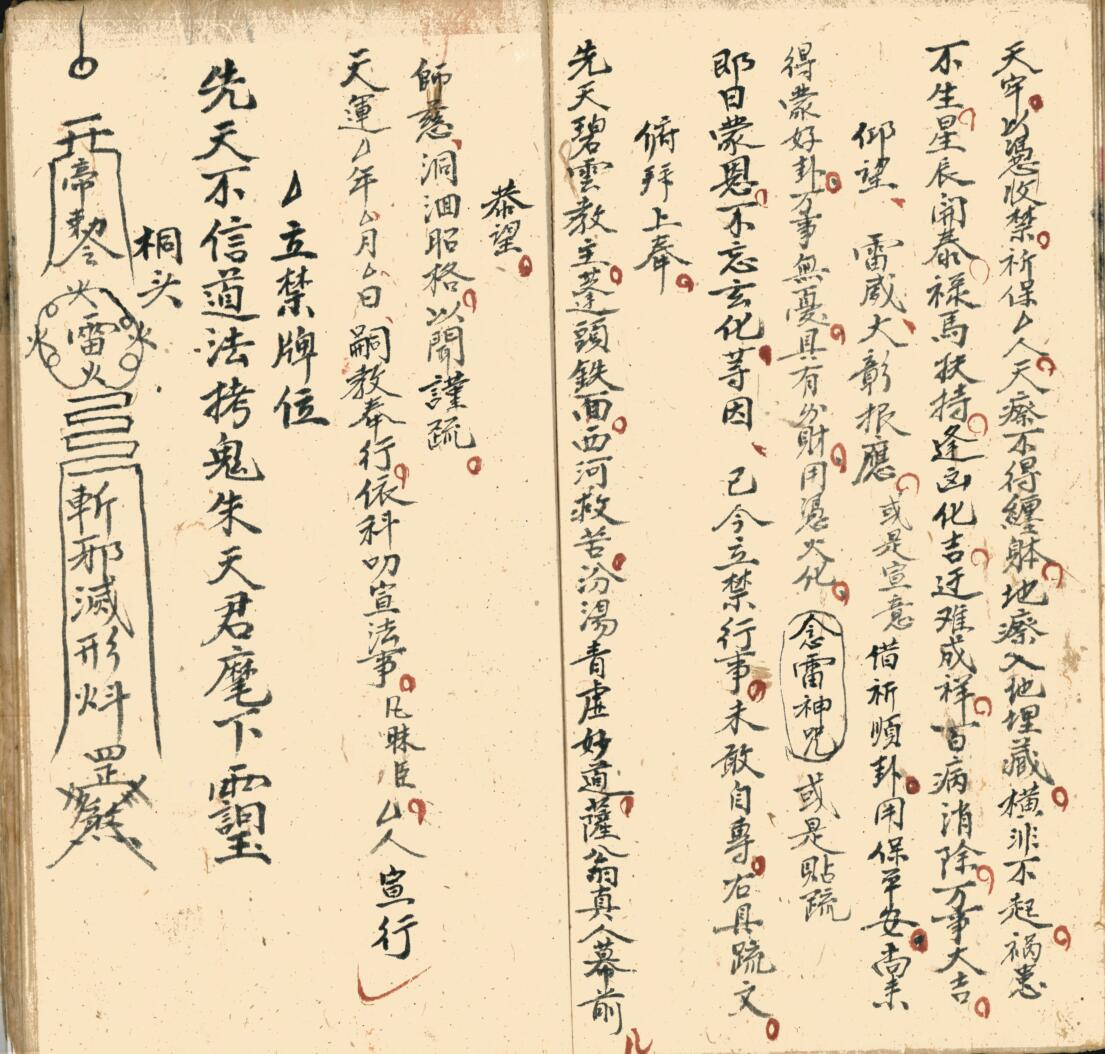 天牢以憑收禁祈保厶人天瘵不得纏躰地瘵入地埋藏横非不起祸患
不生星辰開泰禄馬扶持逢凶化吉迂难成祥百病消除万事大吉
仰望 雷威大彰报應 或是宣意 借祈順卦用保平安尚未
得蒙好卦万事無憂具有分財用憑火化 念雷神咒 或是贴疏
即日蒙恩不忘玄化荨因 已今立禁行事未敢自專右具疏文
俯拜上奉
先天碧雲教主蓬頭鉄面西河救苦汾湯青虚妙道薩翁真人幕前
恭望
師慈洞洄昭格以聞謹疏
天運厶年厶月厶日嗣教奉行依科叨宣法事凡昧臣厶人 宣行
厶立禁牌位
先天不信道法拷鬼朱天君麾下
桐头
帝勅令
火雷火
火 火
斬邪滅形